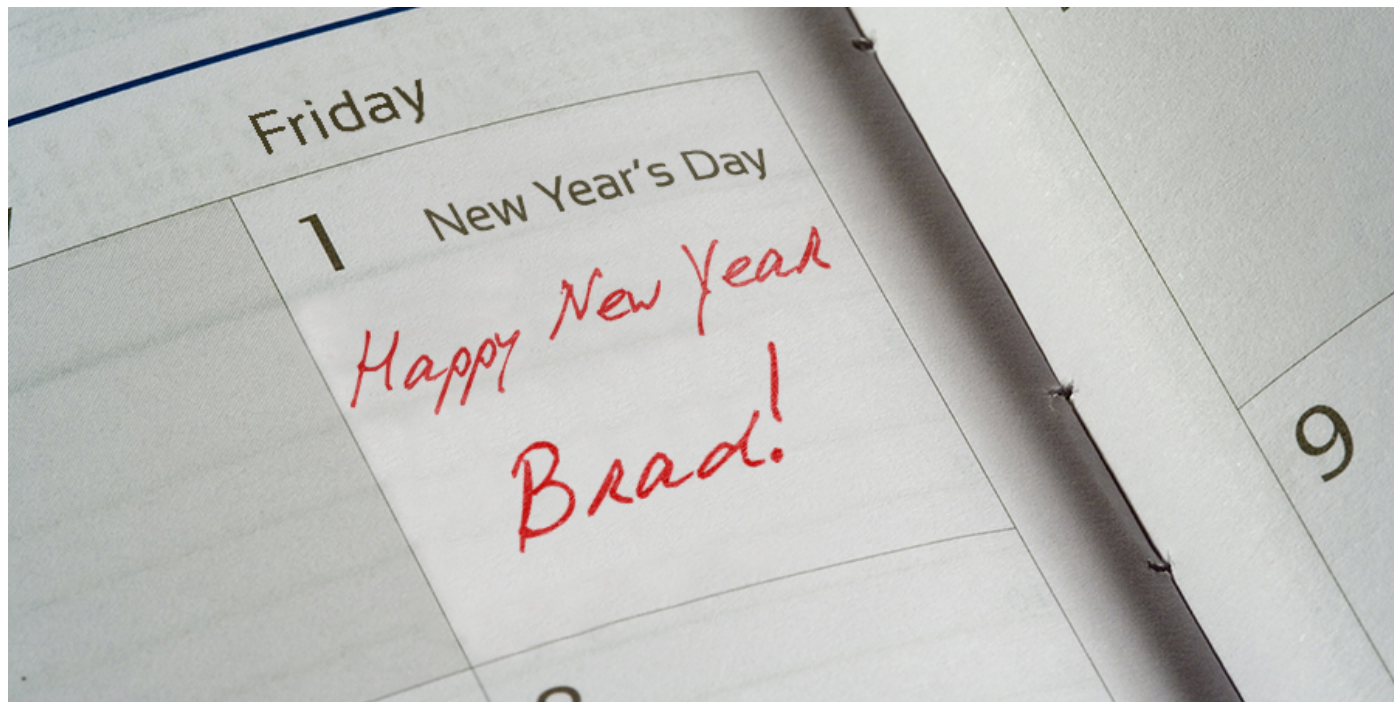 Friday
1 New Year's Day
Happy New Year
Brad!
9